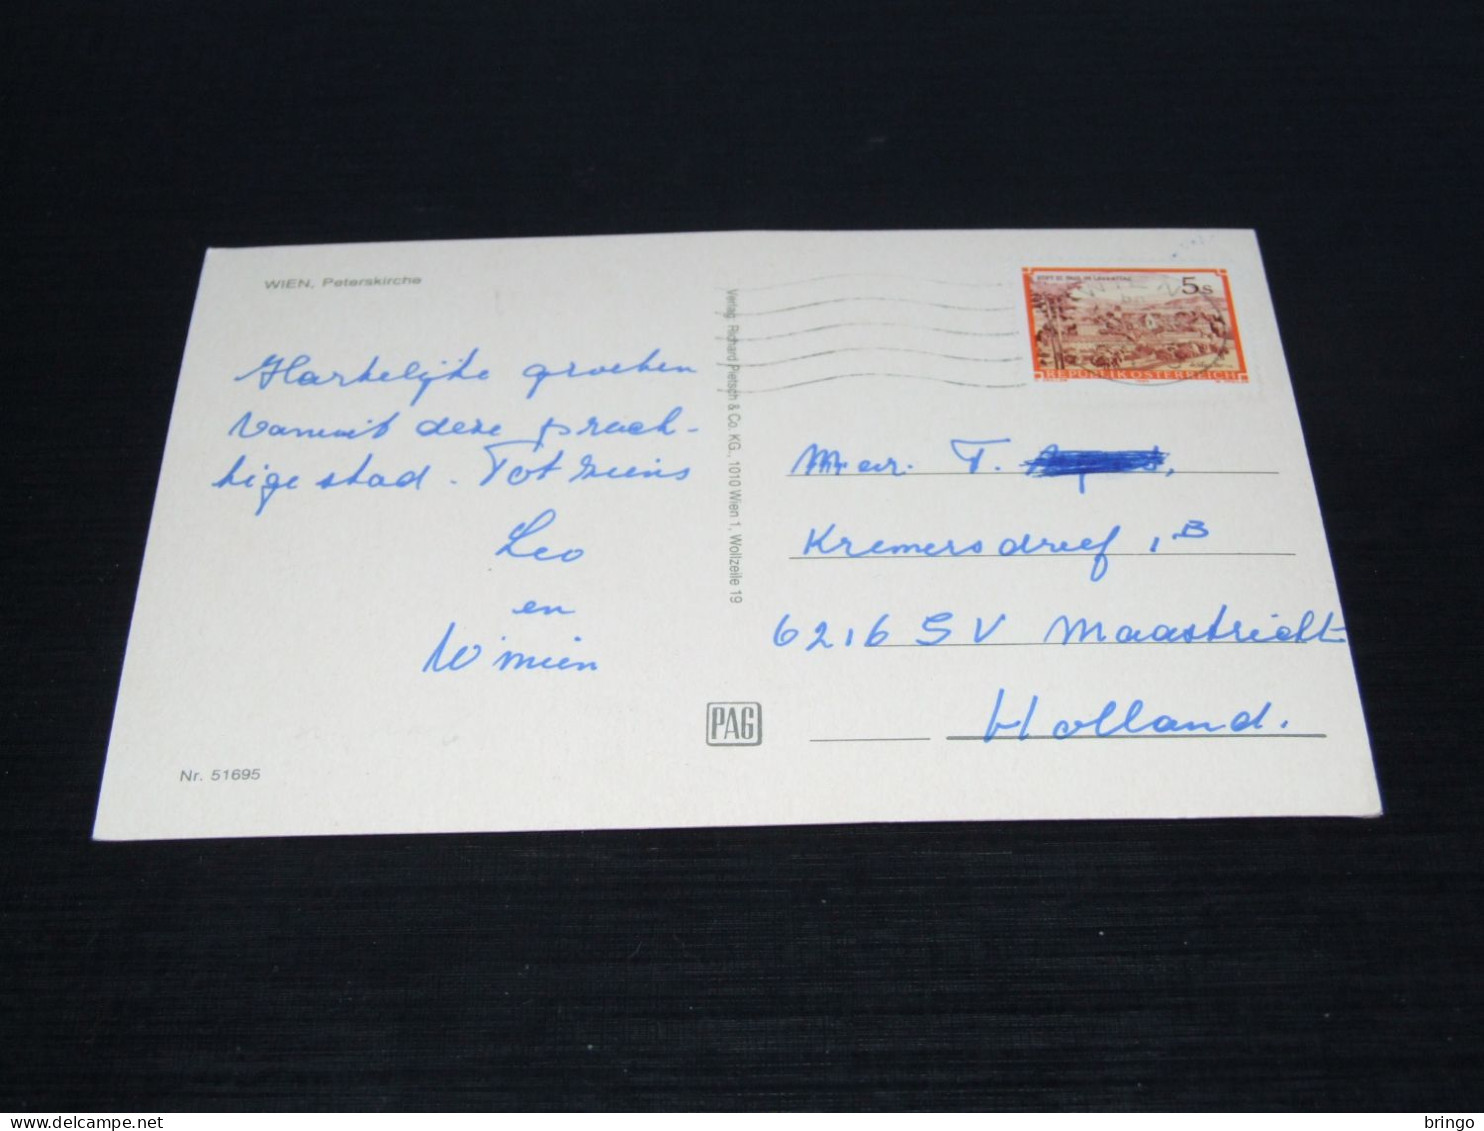 WIEN, Peterskirche
Hartelijke groeten
vanuit deze prach-
tige stad. Tot ziens
Leo
en
Wimien
Nr. 51695
Verlag: Richard Pietsch & Co. KG., 1010 Wien 1, Wollzeile 19
PAG
STIFT ST. PAUL IM LAVANTTAL
5 S
REPUBLIK ÖSTERREICH
WIEN
T.
Kremersdreef 1B
6216 SV Maastricht
Holland.
delcampe.net
bringo